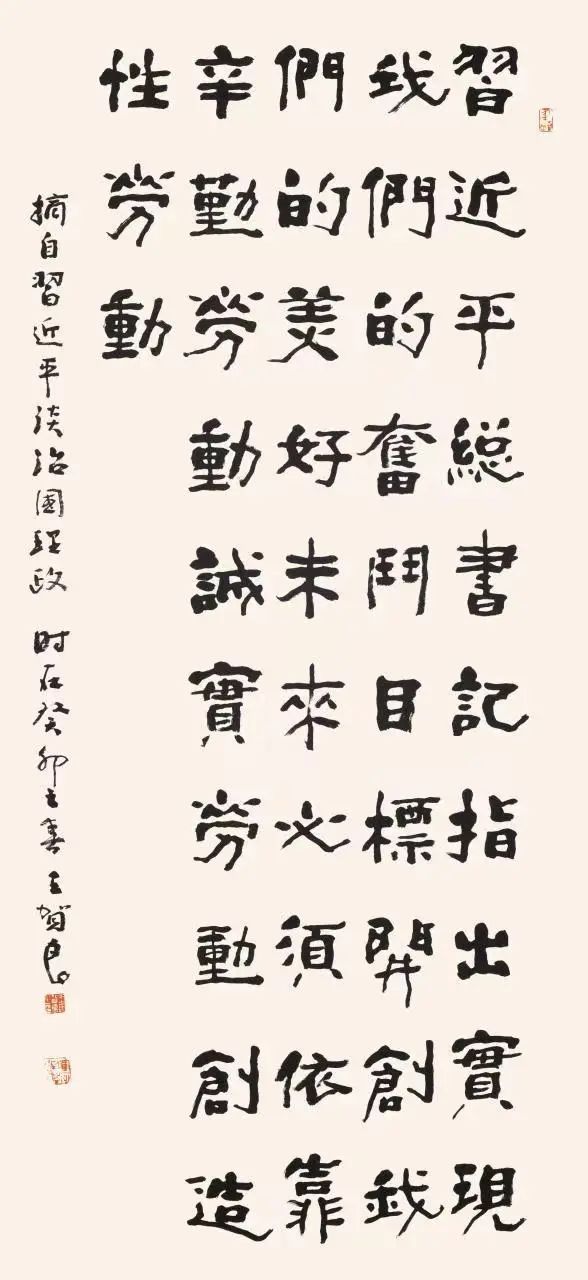 習近平總書記指出實現
我們的奮鬥目標開創我
們的美好未來必須依靠
辛勤勞動誠實勞動創造
性勞動
摘自習近平談治國理政 时在癸卯之春王賀良